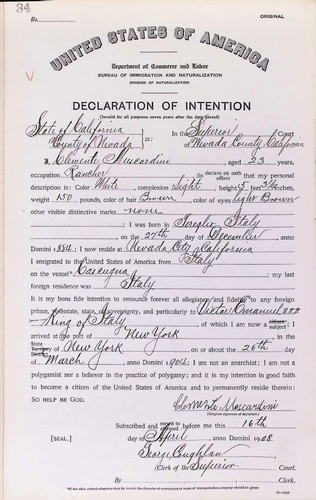 34
No.
ORIGINAL
UNITED STATES OF AMERICA
Department of Commerce and Labor
BUREAU OF IMMIGRATION AND NATURALIZATION
DIVISION OF NATURALIZATION
DECLARATION OF INTENTION
(Invalid for all purposes seven years after the date hereof)
State of California
County of Nevada ss:
In the Superior Court
of Nevada County California
I, Clemente Moscardini, aged 23 years,
occupation Rancher, do declare on oath affirm that my personal
description is: Color White, complexion Light, height 5 feet inches,
weight 150 pounds, color of hair Brown, color of eyes Light Brown
other visible distinctive marks none
I was born in Italy
on the 27th day of December, anno
Domini 1884; I now reside at Nevada City, California
I emigrated to the United States of America from Italy
on the vessel; my last
foreign residence was Italy
It is my bona fide intention to renounce forever all allegiance and fidelity to any foreign
prince, potentate, state, or sovereignty, and particularly to Victor Emanuel III
King of Italy, of which I am now a citizen subject; I
arrived at the port of New York, in the
State Territory of New York on or about the 26th day
of March, anno Domini; I am not an anarchist; I am not a
polygamist nor a believer in the practice of polygamy; and it is my intention in good faith
to become a citizen of the United States of America and to permanently reside therein:
SO HELP ME GOD.
Clemente Moscardini
(Original signature of declarant.)
Subscribed and sworn to before me this 16th
[SEAL.] day of April, anno Domini 1908.
George Coughlan
(Clerk of the Superior Court.
By, Clerk.